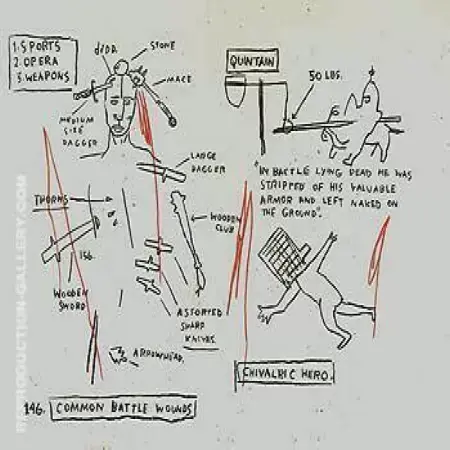 1. SPORTS
2. OPERA
3. WEAPONS
STONE
MACE
MEDIUM
SIZE
DAGGER
LARGE
DAGGER
THORNS
WOODEN
CLUB
156.
WOODEN
SWORD
ASSORTED
SHARP
KNIVES.
ARROWHEAD.
146. COMMON BATTLE WOUNDS
QUINTAIN
50 LBS.
"IN BATTLE LYING DEAD HE WAS
STRIPPED OF HIS VALUABLE
ARMOR AND LEFT NAKED ON
THE GROUND".
CHIVALRIC HERO.
REPRODUCTION-GALLERY.COM